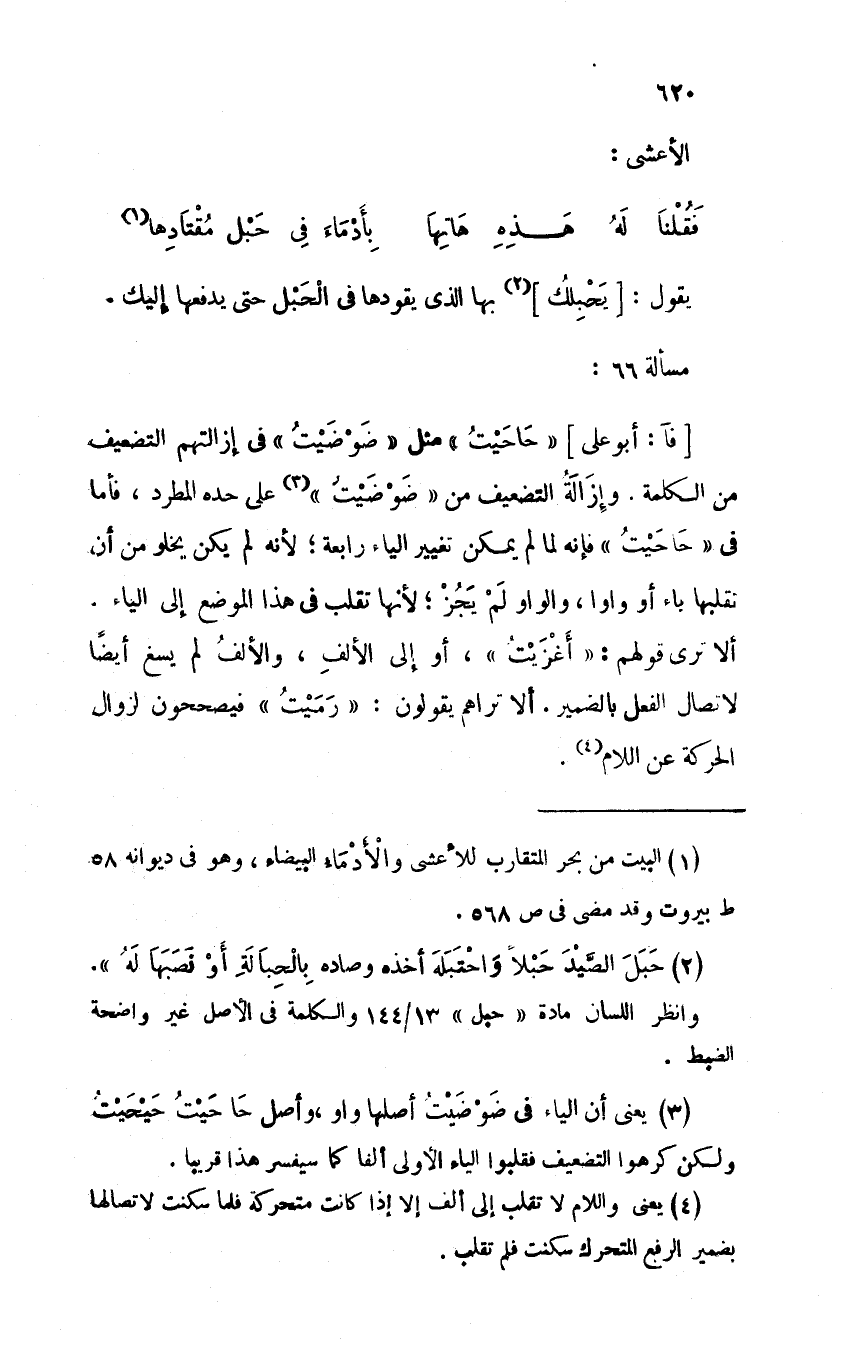 ٦٢٠
الأعشى :
فَقُلْنَا لَهُ هَـــذِهِ هَاتِهَا بِأَدْمَاءَ فِى حَبْلِ مُقْتَادِها(١)
يقول : [ يَحْبِلُكَ ](٢) بها الذى يقودها فى الْحَبْل حتى يدفعها إليك .
مسألة ٦٦ :
[ فآ : أبو على ] « حَاحَيْتُ » مثل « ضَوْضَيْتُ » فى إزالتهم التضعيف
من الـكلمة . وإِزَالَةُ التضعيف من « ضَوْضَيْتُ »(٣) على حده المطرد ، فأما
فى « حَاحَيْتُ » فإنه لما لم يمـكن تغيير الياء رابعة ؛ لأنه لم يكن يخلو من أن
نقلبها ياء أو واوا ، والواو لَمْ يَجُزْ ؛ لأنها تقلب فى هذا الموضع إلى الياء .
ألا ترى قولهم : « أَغْزَيْتُ » ، أو إلى الألفِ ، والألفُ لم يسغ أيضًا
لاتصال الفعل بالضمير . ألا تراهم يقولون : « رَمَيْتُ » فيصححون لزوال
الحركة عن اللام(٤) .
(١) البيت من بحر المتقارب للأعشى والْأَدْمَاء البيضاء ، وهو فى ديوانه ٥٨
ط بيروت وقد مضى فى ص ٥٦٨ .
(٢) حَبَلَ الصَّيْدَ حَبْلاً وَاحْتَبَلَهُ أخذه وصاده بِالْحِبَالَةِ أَوْ نَصَبَهَا لَهُ ».
وانظر اللسان مادة « حبل » ١٤٤/١٣ والـكلمة فى الأصل غير واضحة
الضبط .
(٣) يعنى أن الياء فى ضَوْضَيْتُ أصلها واو ،وأصل حَاحَيْتُ حَيْحَيْتُ
ولـكن كرهوا التضعيف فقلبوا الياء الأولى ألفا كما سيفسر هذا قريبا .
(٤) يعنى واللام لا تقلب إلى ألف إلا إذا كانت متحركة فلما سكنت لاتصالها
بضمير الرفع المتحرك سكنت فلم تقلب .